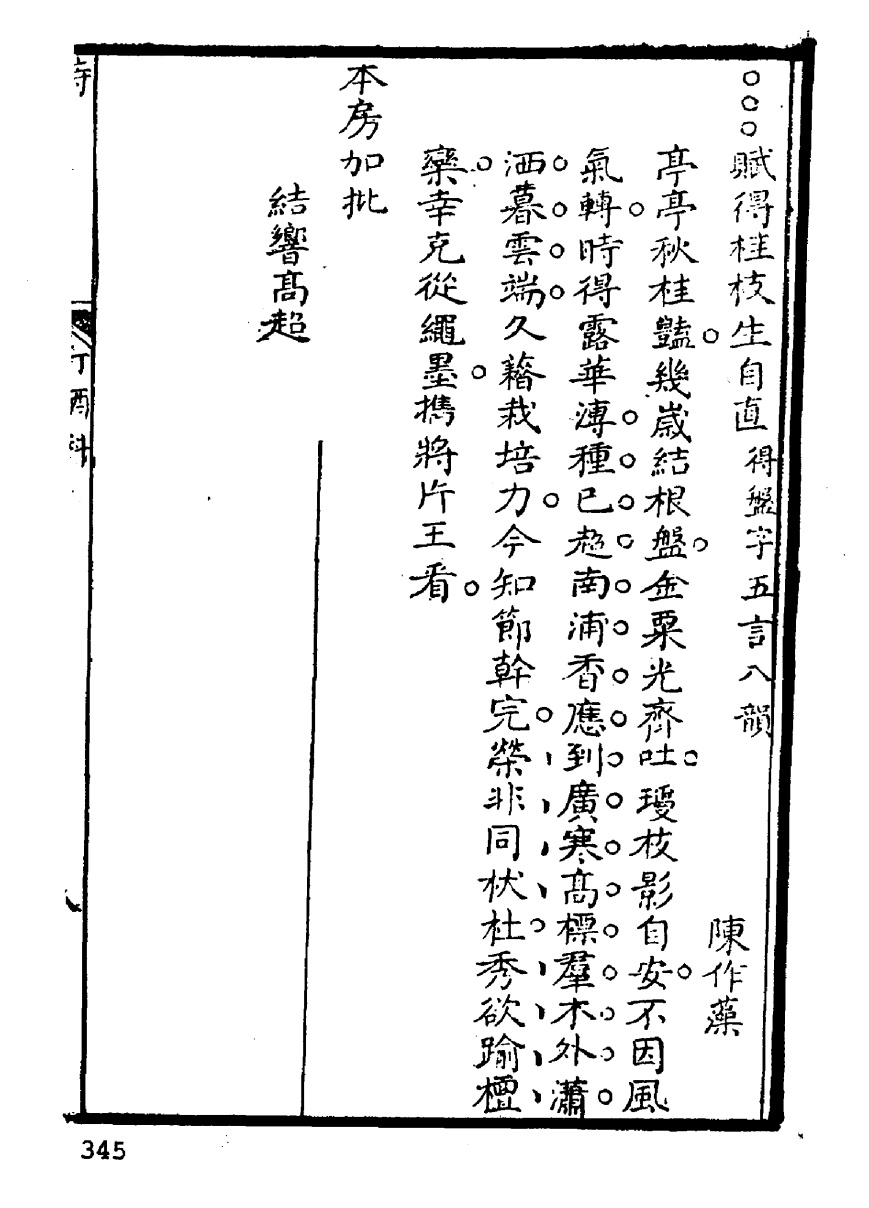 賦得桂枝生自直 得盤字五言八韻
陳作藻
亭亭秋桂豔。幾歲結根盤。金粟光齊吐。瓊枝影自安。不因風
氣轉。時得露華漙。種已超南浦。香應到廣寒。高標羣木外。瀟
洒暮雲端。久藉栽培力。今知節幹完。榮非同杕杜。秀欲踰檀
欒。幸克從繩墨。攜將片王看。
本房加批
結響高超
詩
丁酉科
345